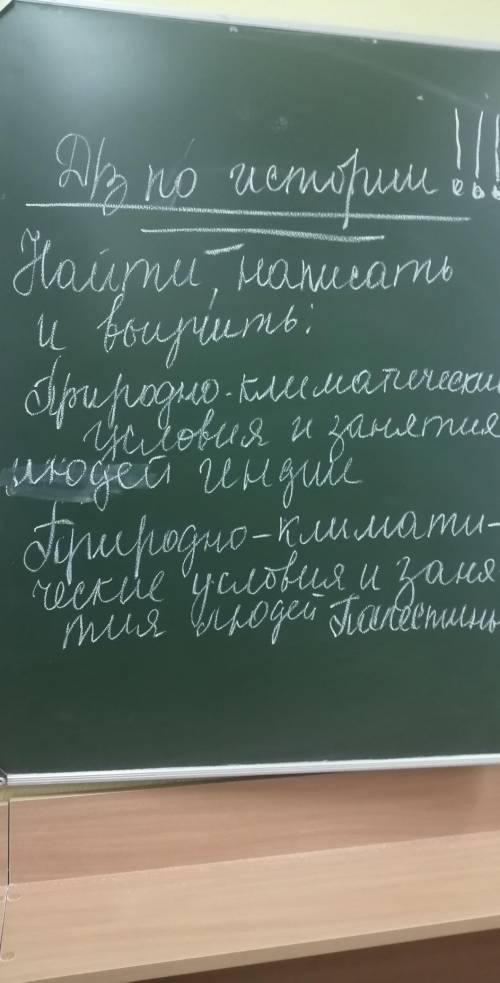 Дз по истории !!!
Найти, написать
и выучить:
Природно-климатически
условия и занятия
людей Индии
Природно-климати-
ческие условия и заня
тия людей Палестины